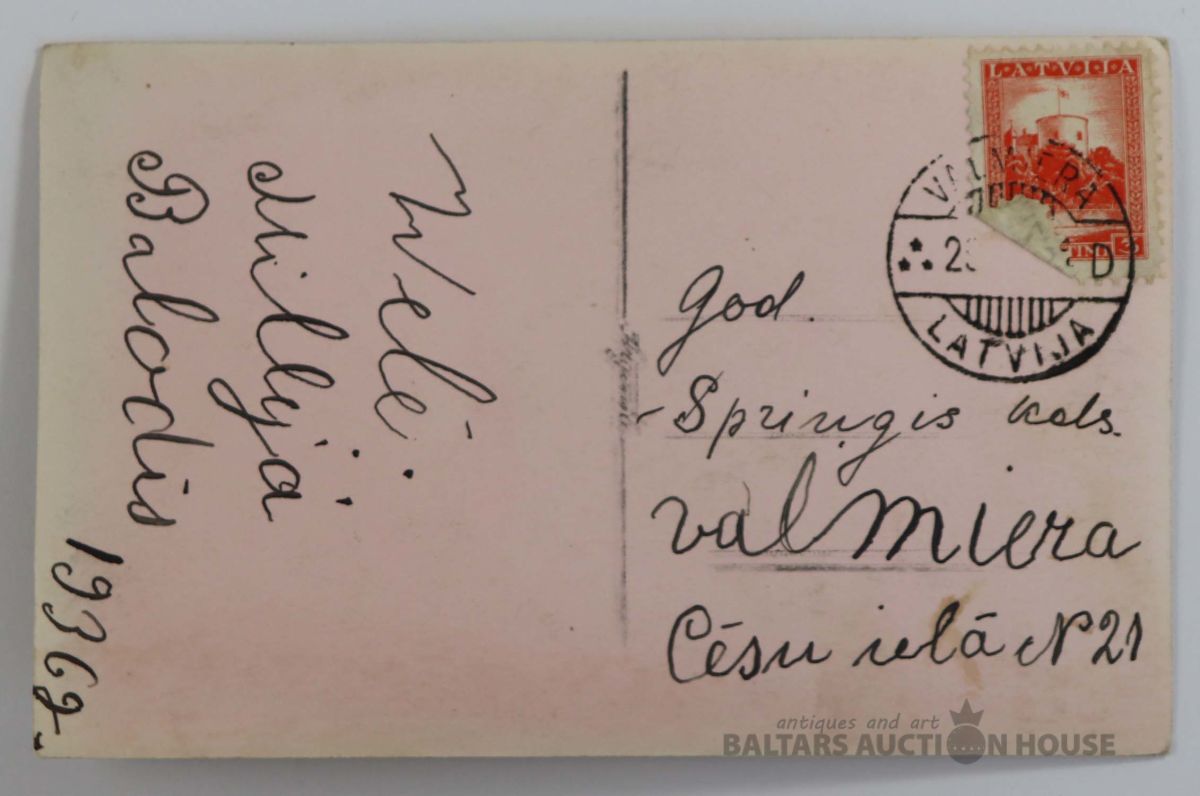 Vēlē
Millija
Balodis
1936 g.
LATVIJA
3
VALMIERA
D
LATVIJA
God.
Spriņģis kds.
Valmiera
Cēsu ielā N 21
antiques and art
BALTARS AUCTION HOUSE